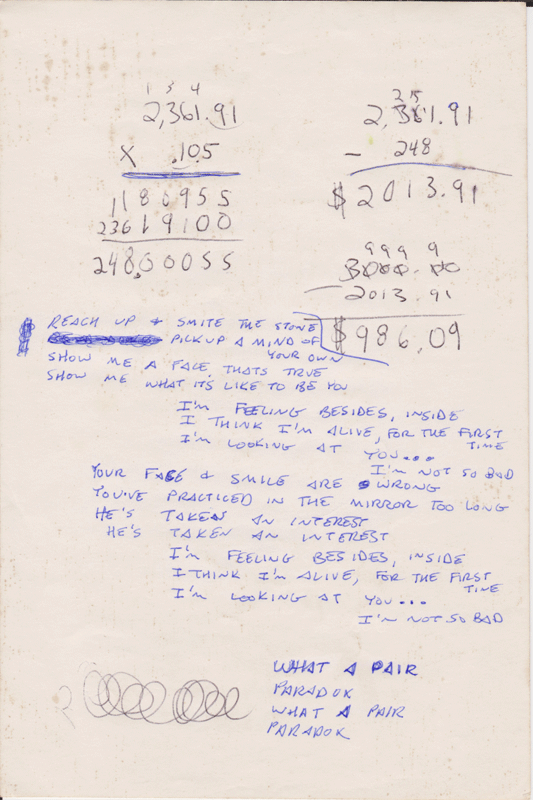 1 3 4
2,361.91
X .105
1180955
2361 9100
248,00055
2 15
2,361.91
- 248
$2013.91
999 9
3000.00
- 2013.91
$986.09
REACH UP & SMITE THE STONE
PICK UP A MIND OF
YOUR OWN
SHOW ME A FACE, THATS TRUE
SHOW ME WHAT ITS LIKE TO BE YOU
I'm FEELING BESIDES, INSIDE
I THINK I'M ALIVE, FOR THE FIRST
TIME
I'm LOOKING AT YOU...
I'm NOT SO BAD
YOUR FACE & SMILE ARE WRONG
YOU'VE PRACTICED IN THE MIRROR TOO LONG
HE'S TAKEN AN INTEREST
HE'S TAKEN AN INTEREST
I'm FEELING BESIDES, INSIDE
I THINK I'm ALIVE, FOR THE FIRST
TIME
I'm LOOKING AT YOU...
I'm NOT SO BAD
WHAT A PAIR
PARADOX
WHAT A PAIR
PARADOX